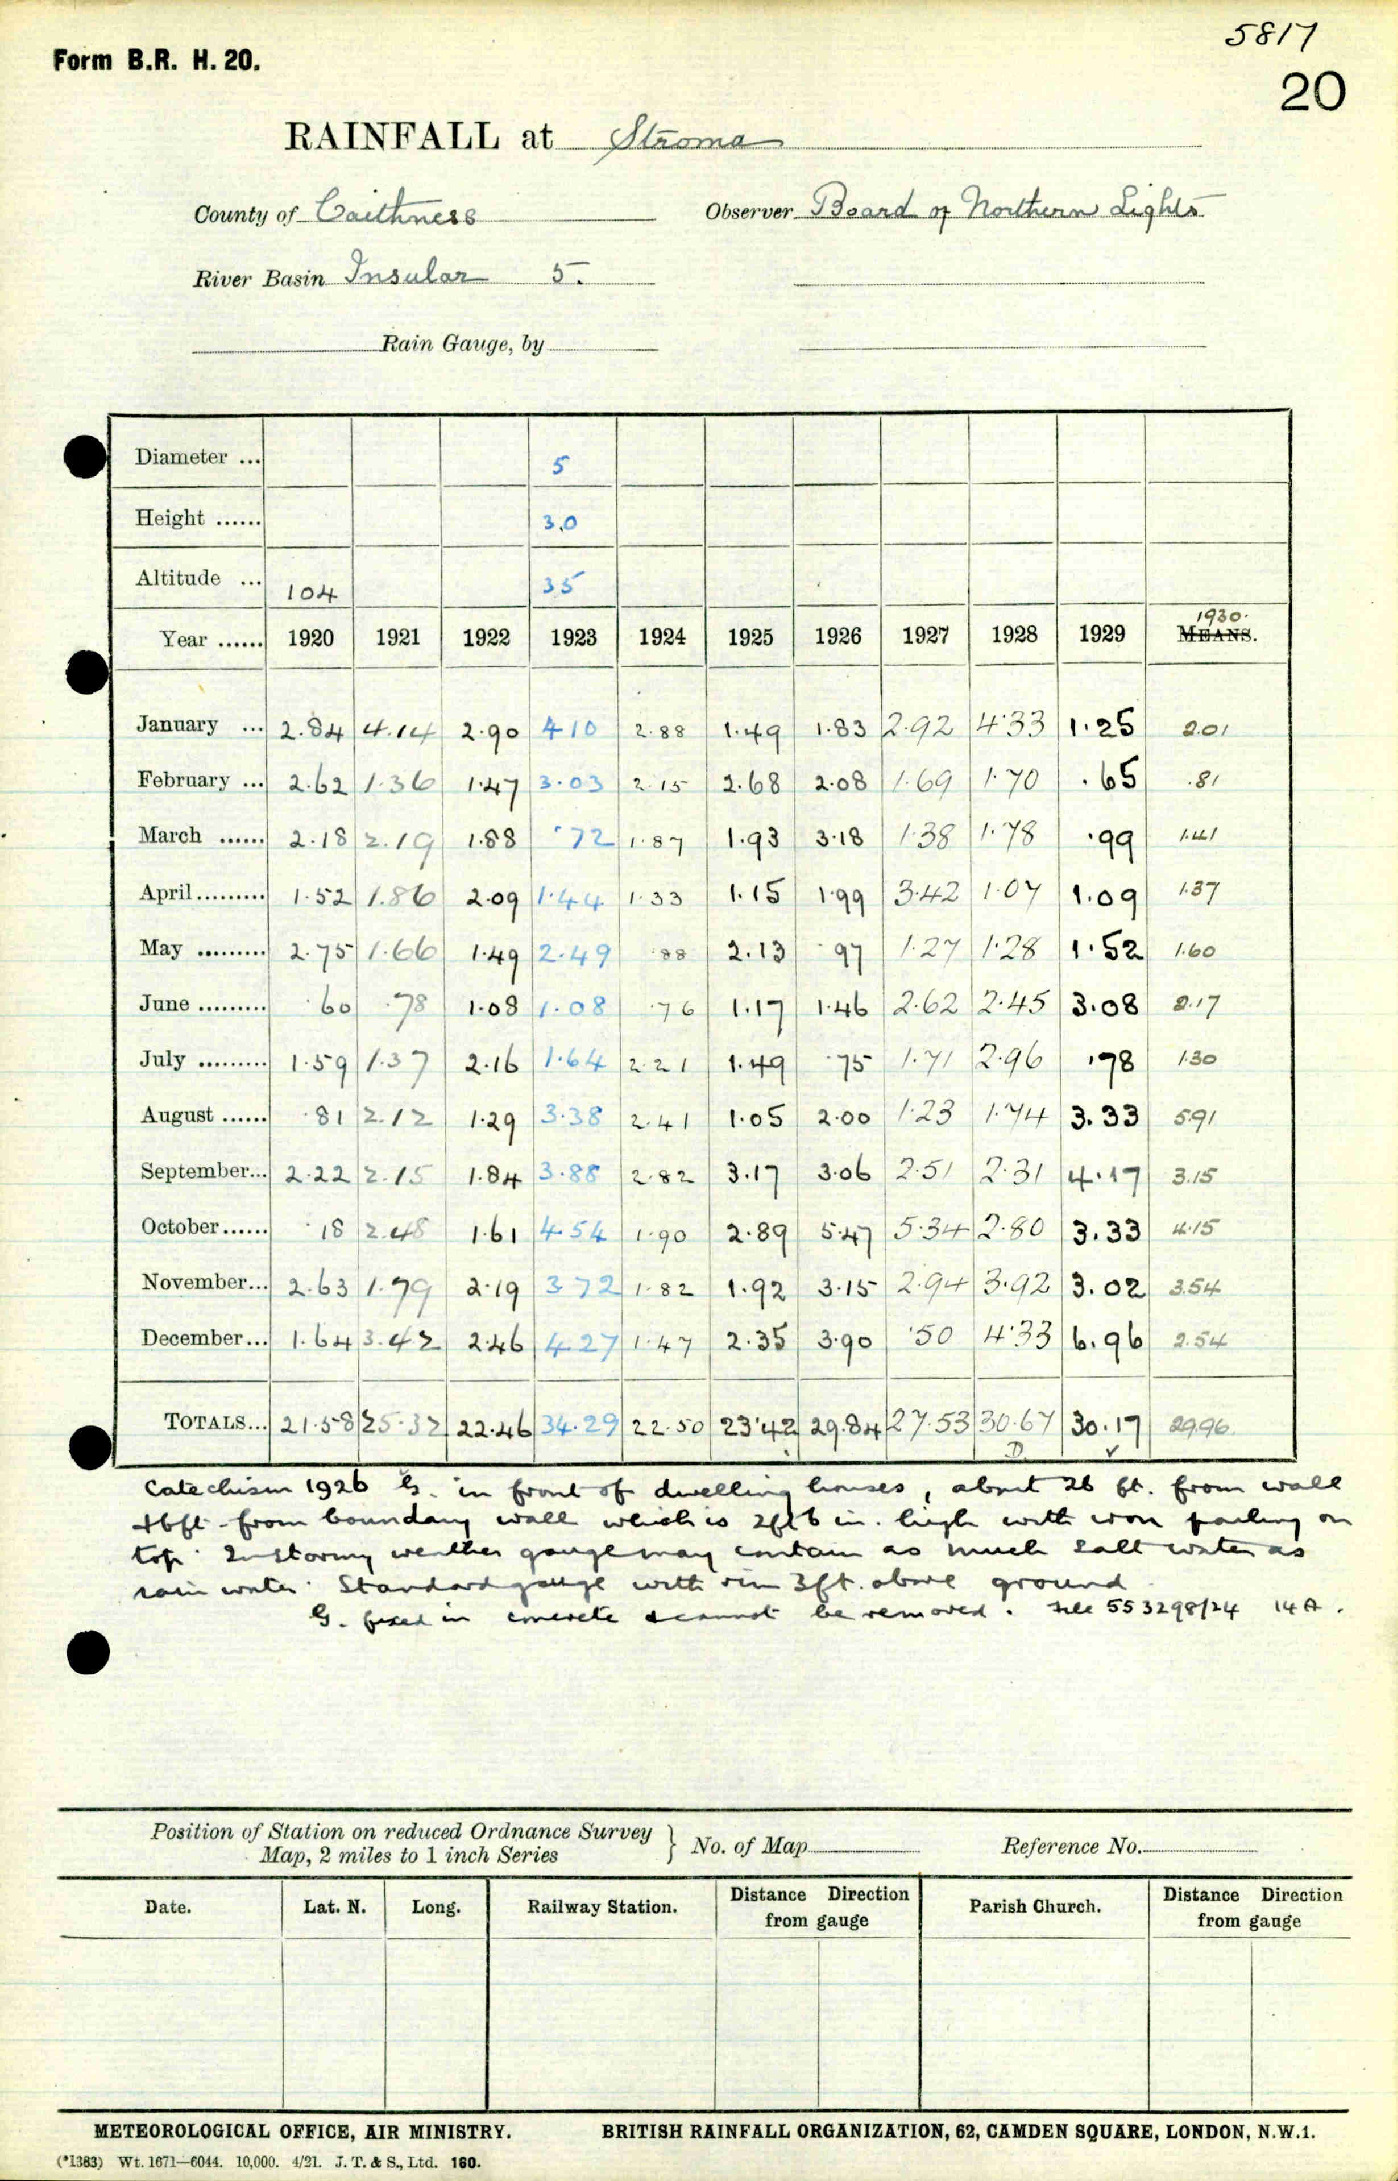 5817
Form B.R. H. 20.
20
RAINFALL at Stroma
County of Caithness Observer Board of Northern Lights
River Basin Insular 5.
Rain Gauge, by
Diameter ... 5
Height ...... 3.0
Altitude ... 104 35
1930.
Year ...... 1920 1921 1922 1923 1924 1925 1926 1927 1928 1929 MEANS.
January ... 2.84 4.14 2.90 4 10 2.88 1.49 1.83 2.92 4.33 1.25 2.01
February ... 2.62 1.36 1.47 3.03 2.15 2.68 2.08 1.69 1.70 .65 .81
March ...... 2.18 2.19 1.88 .72 1.87 1.93 3.18 1.38 1.78 .99 1.41
April......... 1.52 1.86 2.09 1.44 1.33 1.15 1.99 3.42 1.07 1.09 1.37
May ......... 2.75 1.66 1.49 2.49 .88 2.13 .97 1.27 1.28 1.52 1.60
June ......... .60 .78 1.08 1.08 .76 1.17 1.46 2.62 2.45 3.08 2.17
July ......... 1.59 1.37 2.16 1.64 2.21 1.49 .75 1.71 2.96 .78 1.30
August ...... .81 2.12 1.29 3.38 2.41 1.05 2.00 1.23 1.74 3.33 5.91
September... 2.22 2.15 1.84 3.88 2.82 3.17 3.06 2.51 2.31 4.17 3.15
October...... .18 2.48 1.61 4.54 1.90 2.89 5.47 5.34 2.80 3.33 4.15
November... 2.63 1.79 2.19 3 72 1.82 1.92 3.15 2.94 3.92 3.02 3.54
December... 1.64 3.42 2.46 4.27 1.47 2.35 3.90 .50 4.33 6.96 2.54
TOTALS... 21.58 25.32 22.46 34.29 22.50 23.42 29.84 27.53 30.67 30.17 29.96
D
Catechism 1926 G. in front of dwelling houses, about 26 ft. from wall
+6ft from boundary wall which is 2ft 6 in. high with iron paling on
top. In stormy weather gauge may contain as much salt water as
rain water. Standard gauge with rim 3ft. above ground
G. fixed in concrete & cannot be removed. File 553298/24 14A.
Position of Station on reduced Ordnance Survey
Map, 2 miles to 1 inch Series } No. of Map Reference No.
Date. Lat. N. Long. Railway Station. Distance Direction from gauge Parish Church. Distance Direction from gauge
METEOROLOGICAL OFFICE, AIR MINISTRY. BRITISH RAINFALL ORGANIZATION, 62, CAMDEN SQUARE, LONDON, N.W.1.
(*1383) Wt. 1671—6044. 10,000. 4/21. J. T. & S., Ltd. 160.